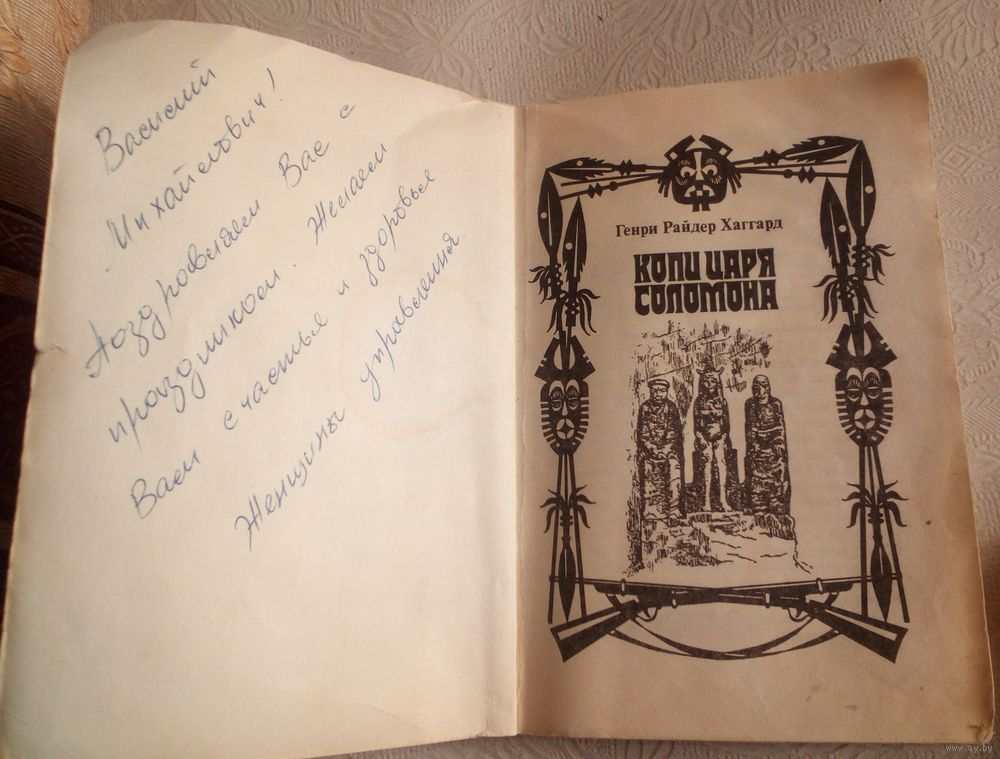 Василий
Михайлович!
Поздравляем Вас с
праздником. Желаем
Вам счастья и здоровья.
Женщины управления.
Генри Райдер Хаггард
КОПИ ЦАРЯ
СОЛОМОНА
www.ay.by